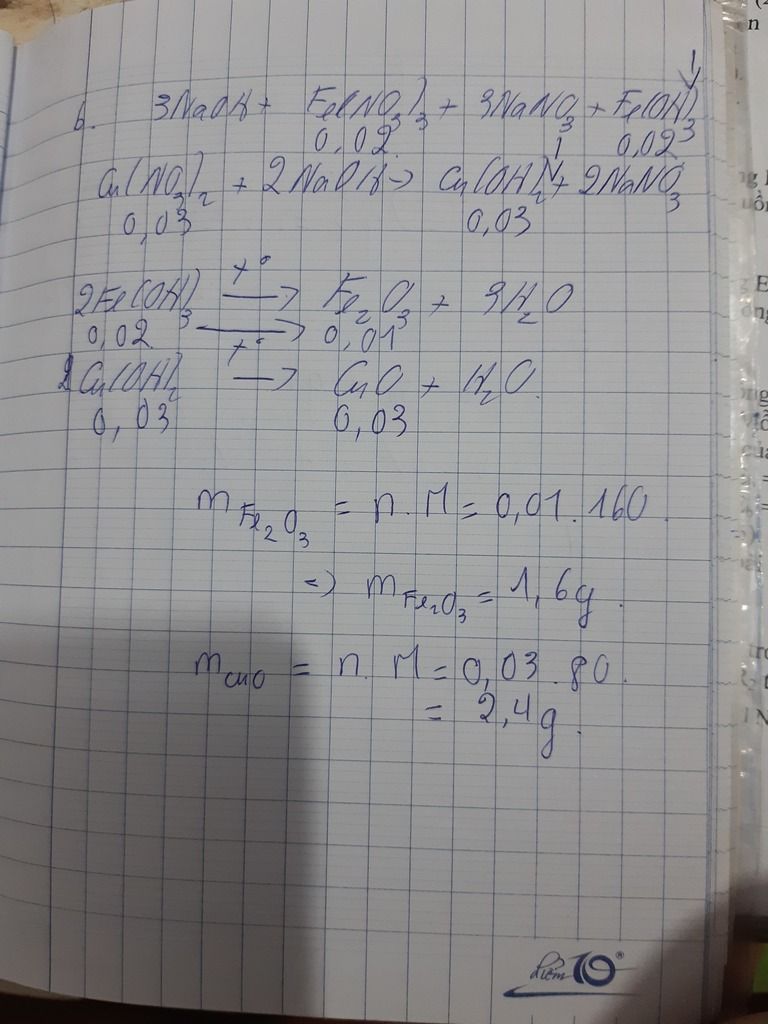 b. 3NaOH + Fe(NO3)3 + 3NaNO3 + Fe(OH)3 ↓
0,02 0,02
Cu(NO3)2 + 2NaOH → Cu(OH)2 ↓ + 2NaNO3
0,03 0,03
2Fe(OH)3 t° → Fe2O3 + 3H2O
0,02 → 0,01
Cu(OH)2 t° → CuO + H2O
0,03 0,03
m Fe2O3 = n . M = 0,01 . 160
=> m Fe2O3 = 1,6g .
m CuO = n . M = 0,03 . 80 .
= 2,4g .
điểm 10